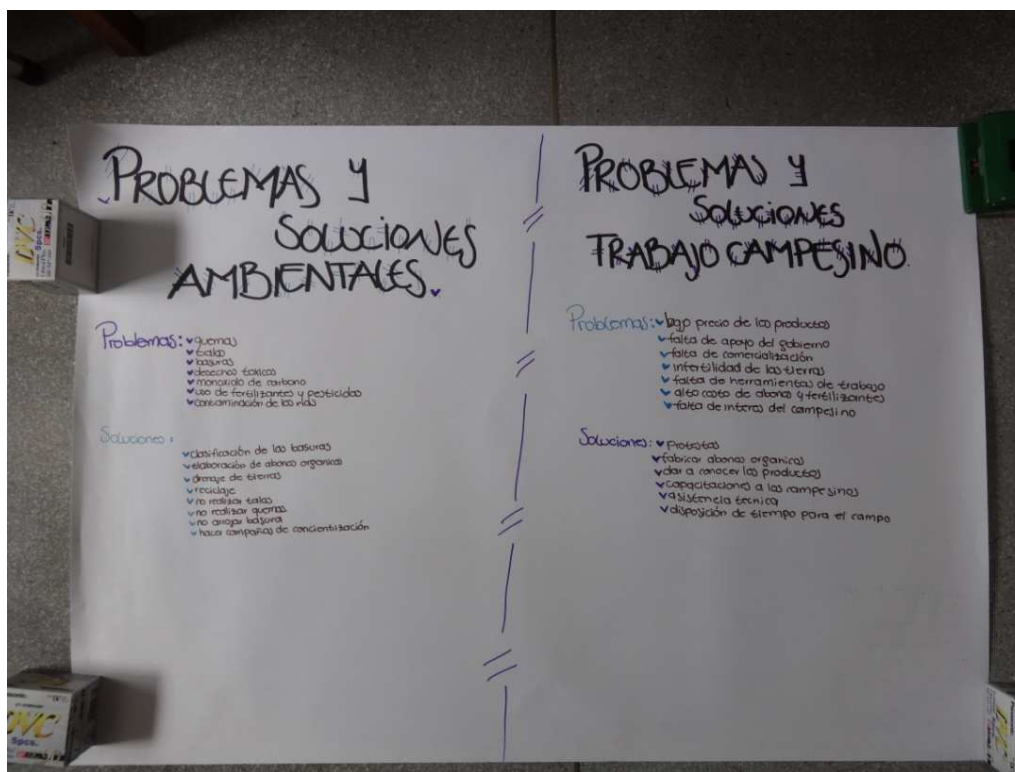 PROBLEMAS Y
SOLUCIONES
AMBIENTALES.
Problemas: quemas
talas
basuras
desechos toxicos
monoxido de carbono
uso de fertilizantes y pesticidas
contaminación de los rios
Soluciones:
clasificación de las basuras
elaboración de abonos organicos
drenaje de tierras
reciclaje
no realizar talas
no realizar quemas
no arrojar basura
hacer campañas de concientización
PROBLEMAS Y
SOLUCIONES
TRABAJO CAMPESINO.
Problemas: bajo precio de los productos
falta de apoyo del gobierno
falta de comercialización
infertilidad de las tierras
falta de herramientas de trabajo
alto costo de abonos y fertilizantes
falta de interes del campesino
Soluciones: Protestas
fabricar abonos organicos
dar a conocer los productos
capacitaciones a los campesinos
asistencia tecnica
disposición de tiempo para el campo
DVC
5pcs.
DVC
5pcs.